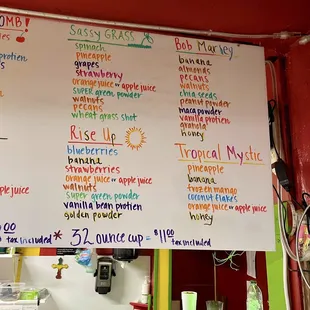 OMB!
ies
otien
pple juice
.00
tax included *
Sassy GRASS
spinach
pineapple
grapes
strawberry
orange juice or apple juice
SUPER GREEN powder
walnuts
pecans
wheat grass shot
Rise Up
blueberries
banana
strawberries
orange juice or apple juice
walnuts
super green powder
vanilla bean protien
golden powder
Bob Marley
banana
almonds
pecans
walnuts
chia seeds
peanut powder
maca powder
vanilla protien
granola
honey
Tropical Mystic
pineapple
banana
frozen mango
coconut flakes
orange juice or apple juice
honey
32 ounce cup = $11.00 tax included